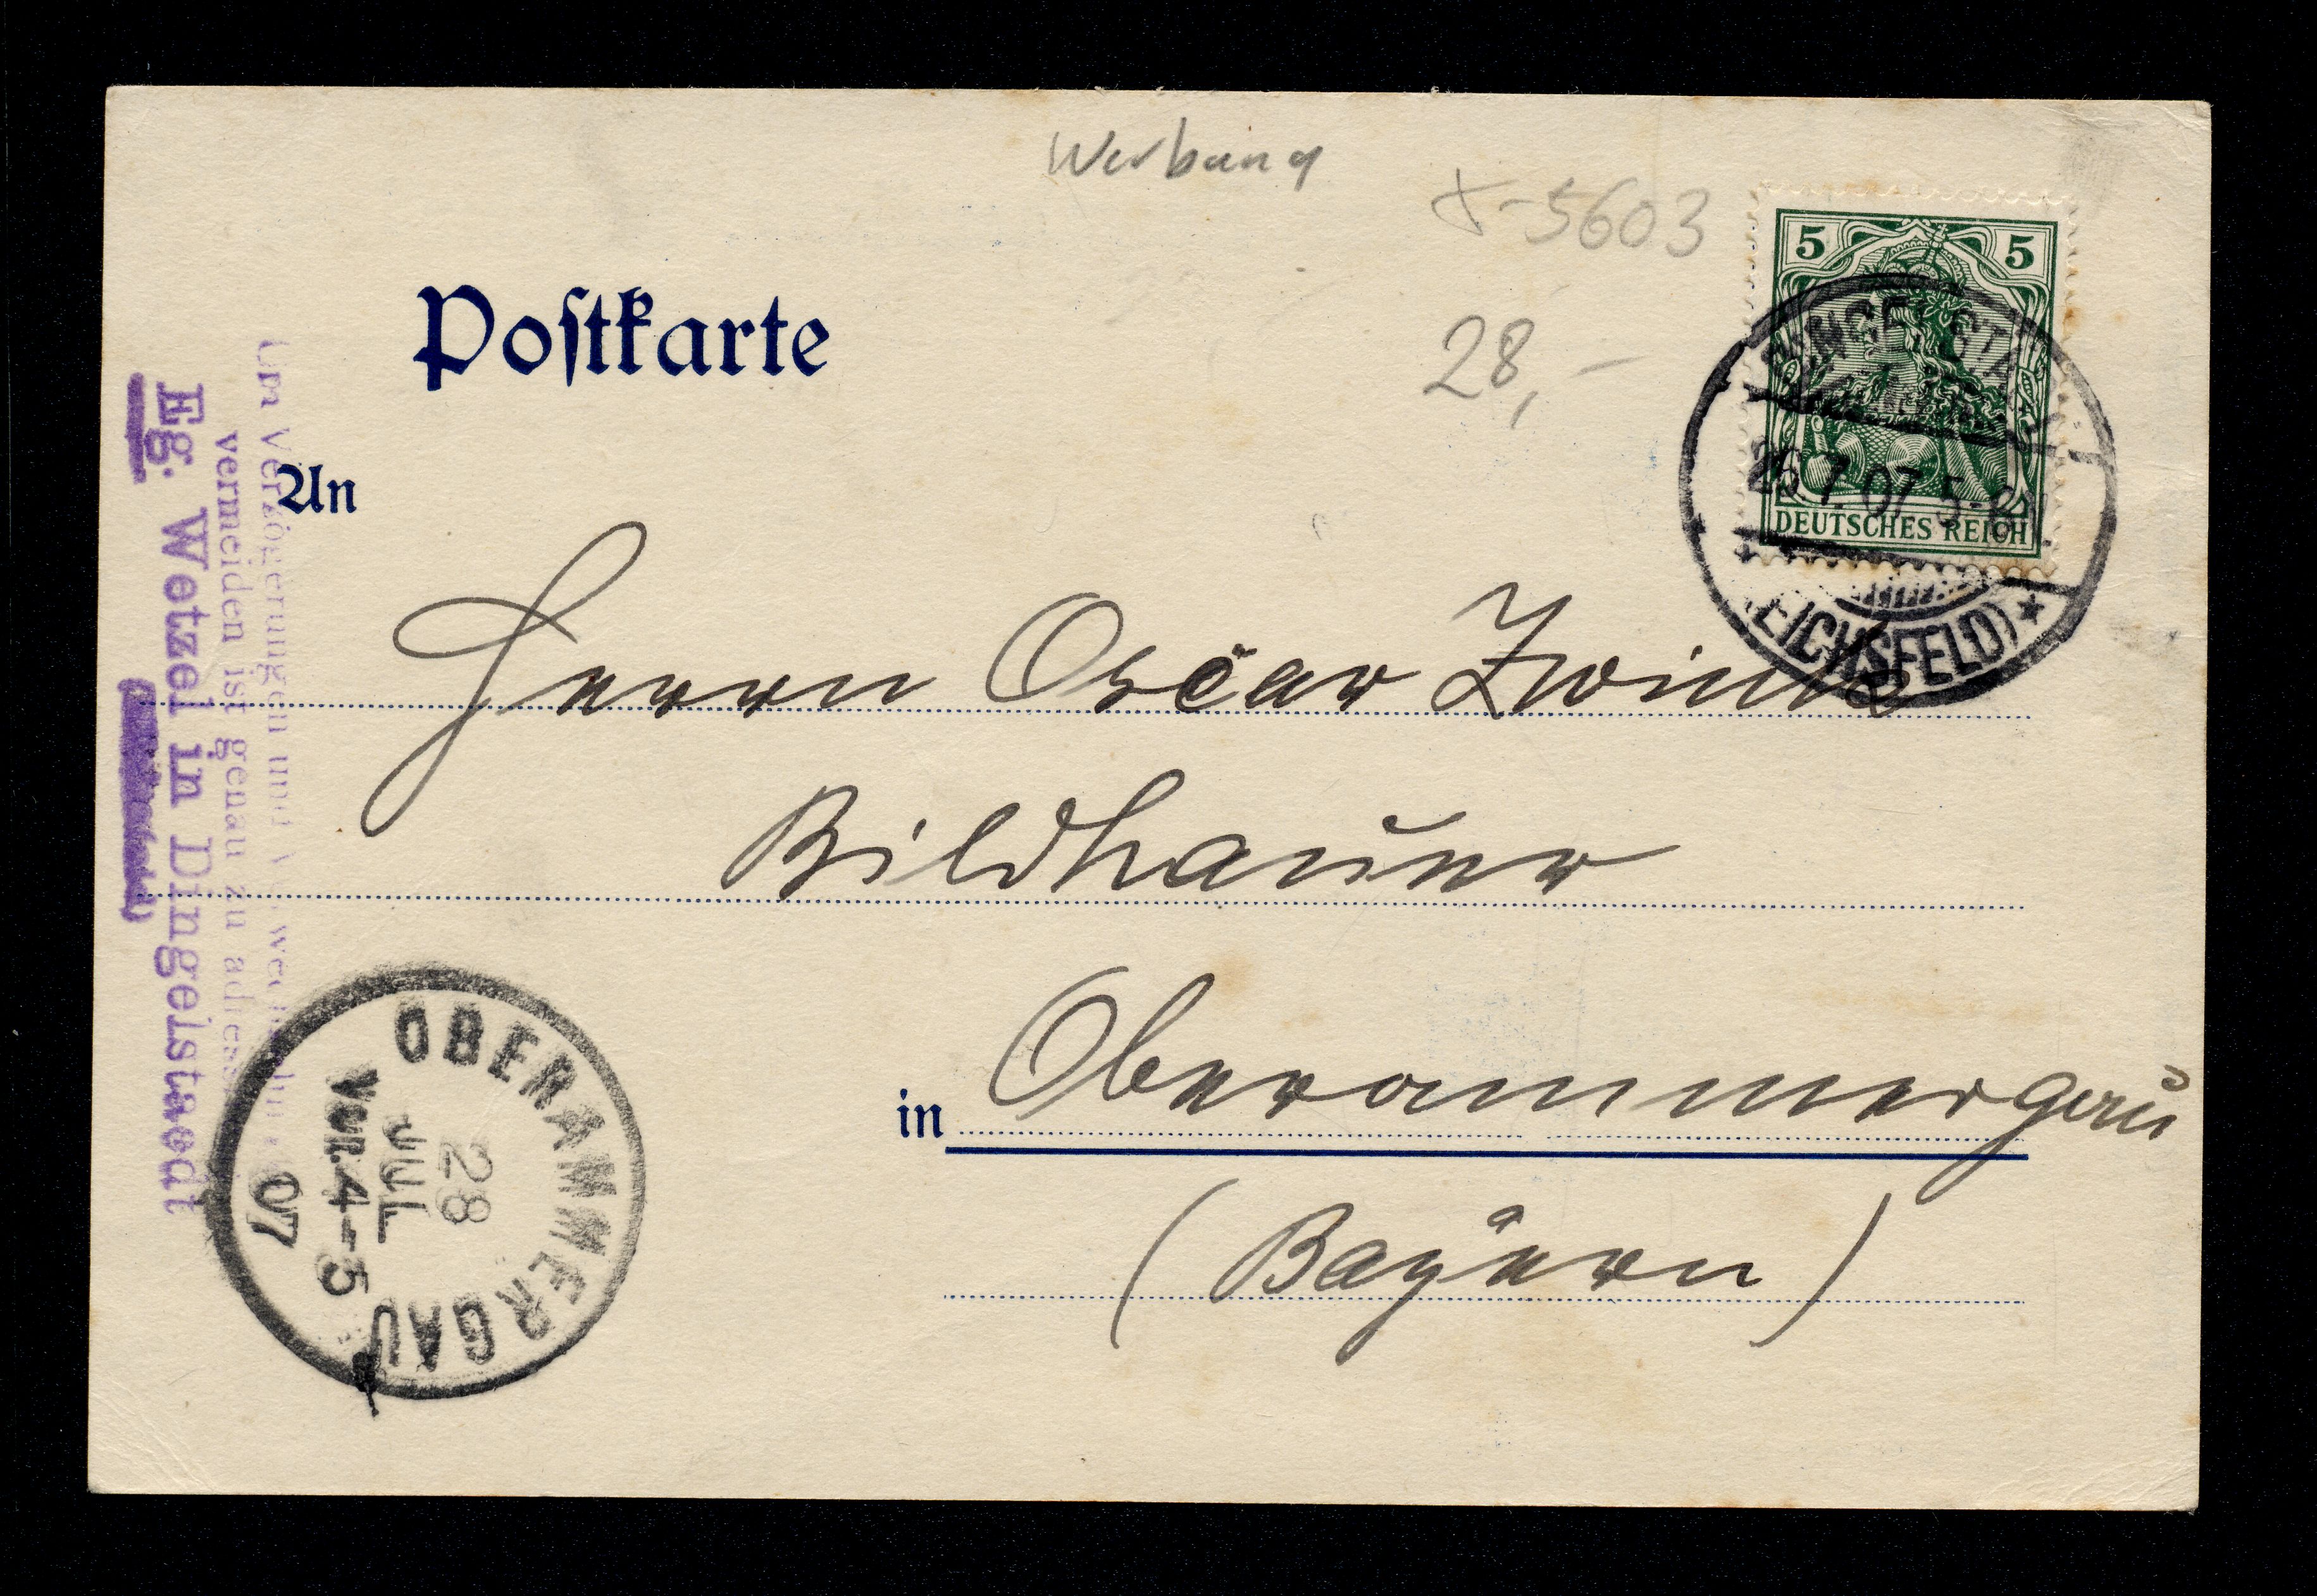 Werbung
x-5603
28,-
Postkarte
An
Herrn Oscar Zwink
Bildhauer
in Oberammergau
(Bayern)
5 5
DEUTSCHES REICH
26.7.07 5-
(EICHSFELD)
Um Verzögerungen und
vermeiden ist genau zu
Eg. Wetzel in Dingelstaedt
OBERAMMERGAU
28
JUL
VOR. 4-5
07